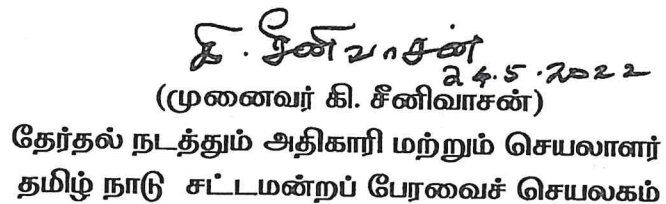 கி. சீனிவாசன்
24.5.2022
(முனைவர் கி. சீனிவாசன்)
தேர்தல் நடத்தும் அதிகாரி மற்றும் செயலாளர்
தமிழ் நாடு சட்டமன்றப் பேரவைச் செயலகம்